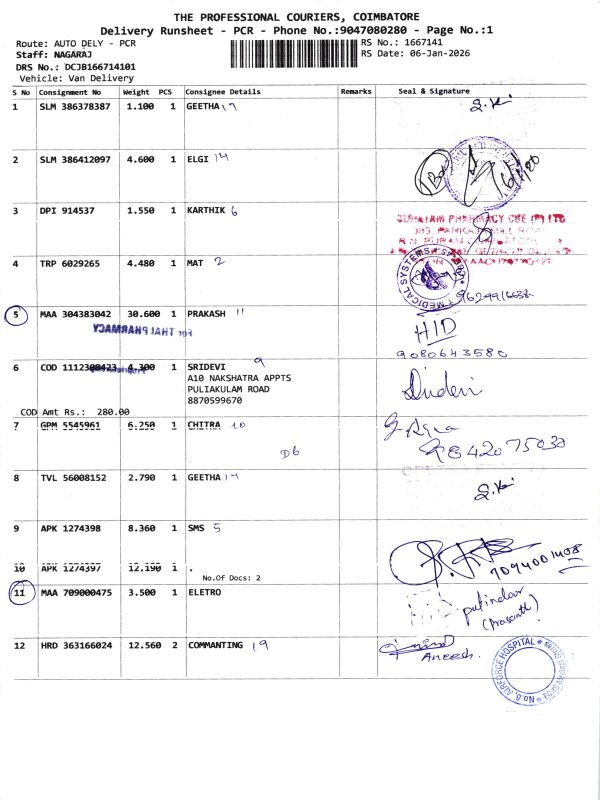 THE PROFESSIONAL COURIERS, COIMBATORE
Delivery Runsheet - PCR - Phone No.:9047080280 - Page No.:1
Route: AUTO DELY - PCR
RS No.: 1667141
Staff: NAGARAJ
RS Date: 06-Jan-2026
DRS No.: DCJB166714101
Vehicle: Van Delivery
S No Consignment No Weight PCS Consignee Details Remarks Seal & Signature
1 SLM 386378387 1.100 1 GEETHA 17
2 SLM 386412097 4.600 1 ELGI 14
3 DPI 914537 1.550 1 KARTHIK 6
4 TRP 6029265 4.480 1 MAT 2
MEDICAL SYSTEMS
5 MAA 304383042 30.600 1 PRAKASH 11
For THALPHARMACY
HID
9080643580
6 COD 1112308423 4.300 1 SRIDEVI 9
A10 NAKSHATRA APPTS
PULIAKULAM ROAD
8870599670
COD Amt Rs.: 280.00
7 GPM 5545961 6.250 1 CHITRA 10
D6
9842075030
8 TVL 56008152 2.790 1 GEETHA 17
9 APK 1274398 8.360 1 SMS 5
9094001408
10 APK 1274397 12.190 1 .
No.Of Docs: 2
11 MAA 709000475 3.500 1 ELETRO
(Prasanth)
12 HRD 363166024 12.560 2 COMMANTING 19
Aneesh
No.8 AIRFORCE HOSPITAL